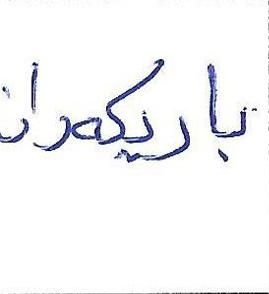 یاریکەران